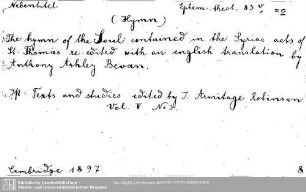 Nebentitel Ephem. theol. 83
(Hymn)
The hymn of the soul contained in the Syriac acts of
St. Thomas re-edited with an english translation by
Anthony Ashley Bevan.
Texts and studies edited by J. Armitage Robinson
Vol. V No 3.
Cambridge 1897 8